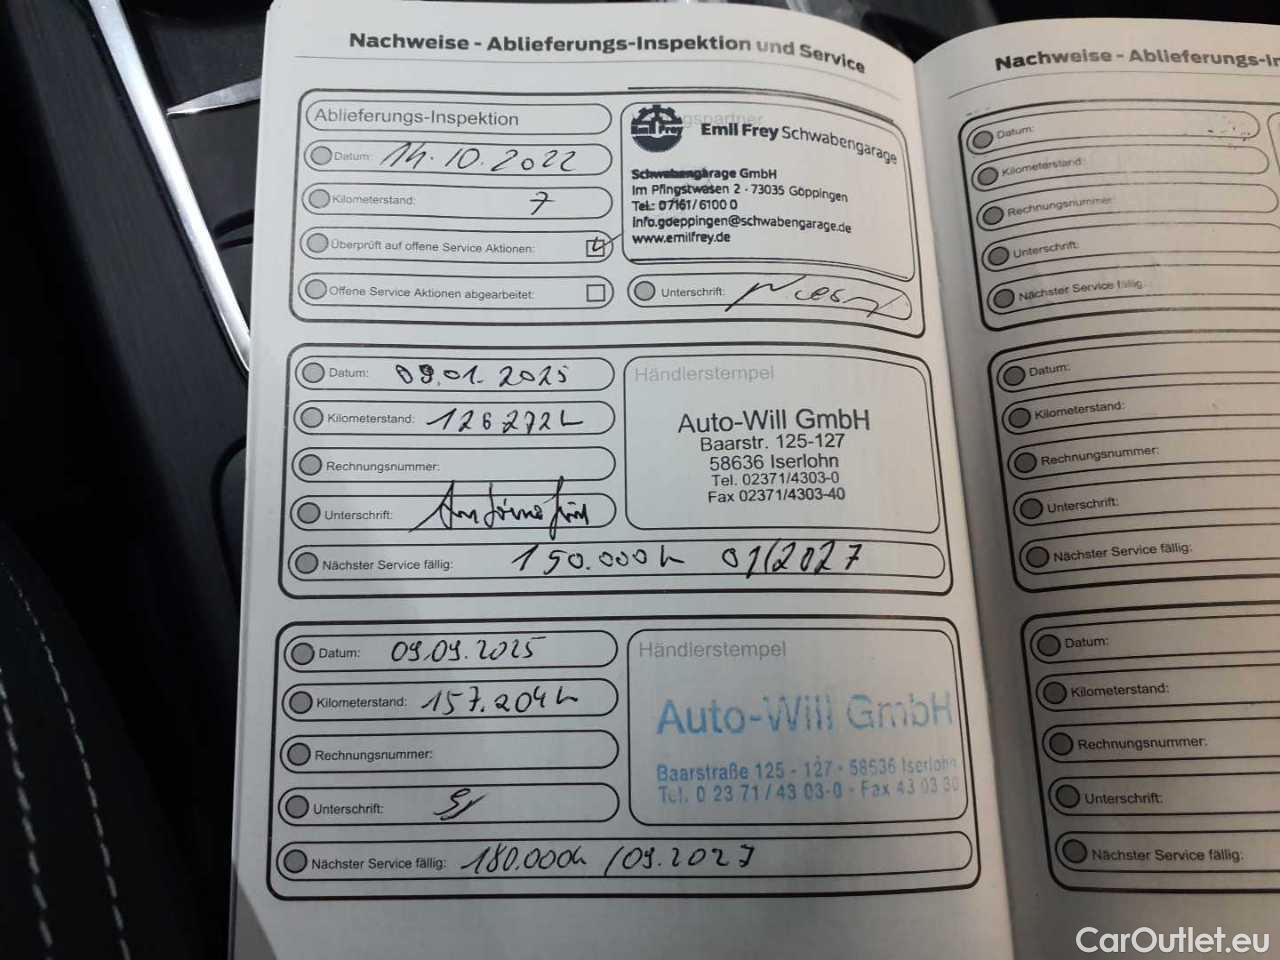 Nachweise - Ablieferungs-Inspektion und Service
Ablieferungs-Inspektion
Datum: 14.10.2022
Kilometerstand: 7
Überprüft auf offene Service Aktionen:
Offene Service Aktionen abgearbeitet:
Emil Frey
Emil Frey Schwabengarage
Schwabengarage GmbH
Im Pfingstwasen 2 · 73035 Göppingen
Tel.: 07161/6100 0
info.goeppingen@schwabengarage.de
www.emilfrey.de
Unterschrift:
Datum: 09.01.2025
Kilometerstand: 126272
Rechnungsnummer:
Unterschrift:
Nächster Service fällig: 150.000 01/2027
Händlerstempel
Auto-Will GmbH
Baarstr. 125-127
58636 Iserlohn
Tel. 02371/4303-0
Fax 02371/4303-40
Datum: 09.09.2025
Kilometerstand: 157.204
Rechnungsnummer:
Unterschrift:
Nächster Service fällig: 180.000 /09.2027
Händlerstempel
Auto-Will GmbH
Baarstraße 125 - 127 · 58636 Iserlohn
Tel. 0 23 71 / 43 03-0 · Fax 43 03 30
Nachweise - Ablieferungs-In
Datum:
Kilometerstand:
Rechnungsnummer:
Unterschrift:
Nächster Service fällig:
Datum:
Kilometerstand:
Rechnungsnummer:
Unterschrift:
Nächster Service fällig:
Datum:
Kilometerstand:
Rechnungsnummer:
Unterschrift:
Nächster Service fällig:
CarOutlet.eu